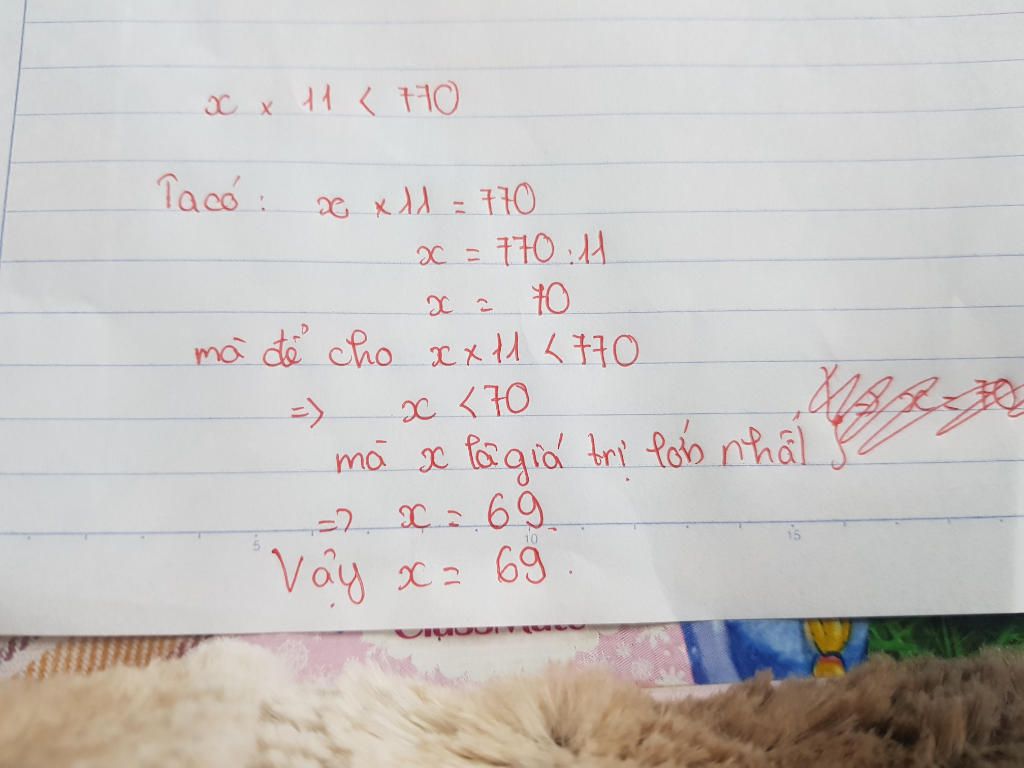 x × 11 < 770
Ta có : x × 11 = 770
x = 770 : 11
x = 70
mà đề cho x × 11 < 770
=> x < 70
mà x là giá trị lớn nhất
=> x = 69
5 10 15
Vậy x = 69.